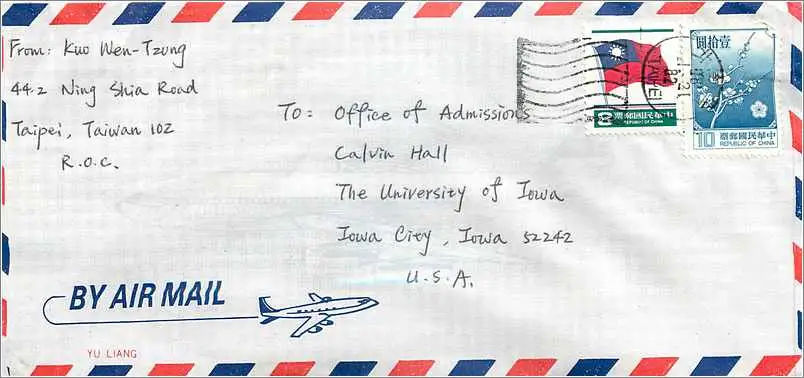 From: Kuo Wen-Tzung
44.2 Ning Shia Road
Taipei, Taiwan 102
R.O.C.
To: Office of Admissions
Calvin Hall
The University of Iowa
Iowa City, Iowa 52242
U.S.A.
8 票郵國民華中
REPUBLIC OF CHINA
TAIPEI
圓拾壹
10 票郵國民華中
REPUBLIC OF CHINA
BY AIR MAIL
YU LIANG